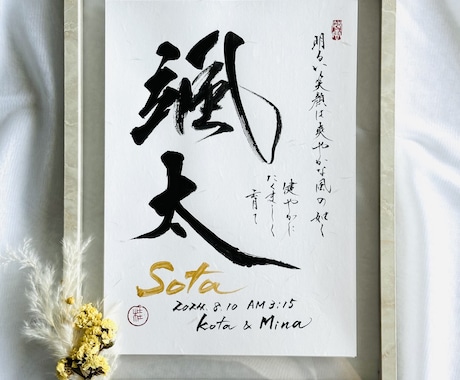 颯太
明るい笑顔は爽やかな風の如く
健やかに
たくましく
育て
Sota
2024.8.10 AM3:15
Kota & Mina